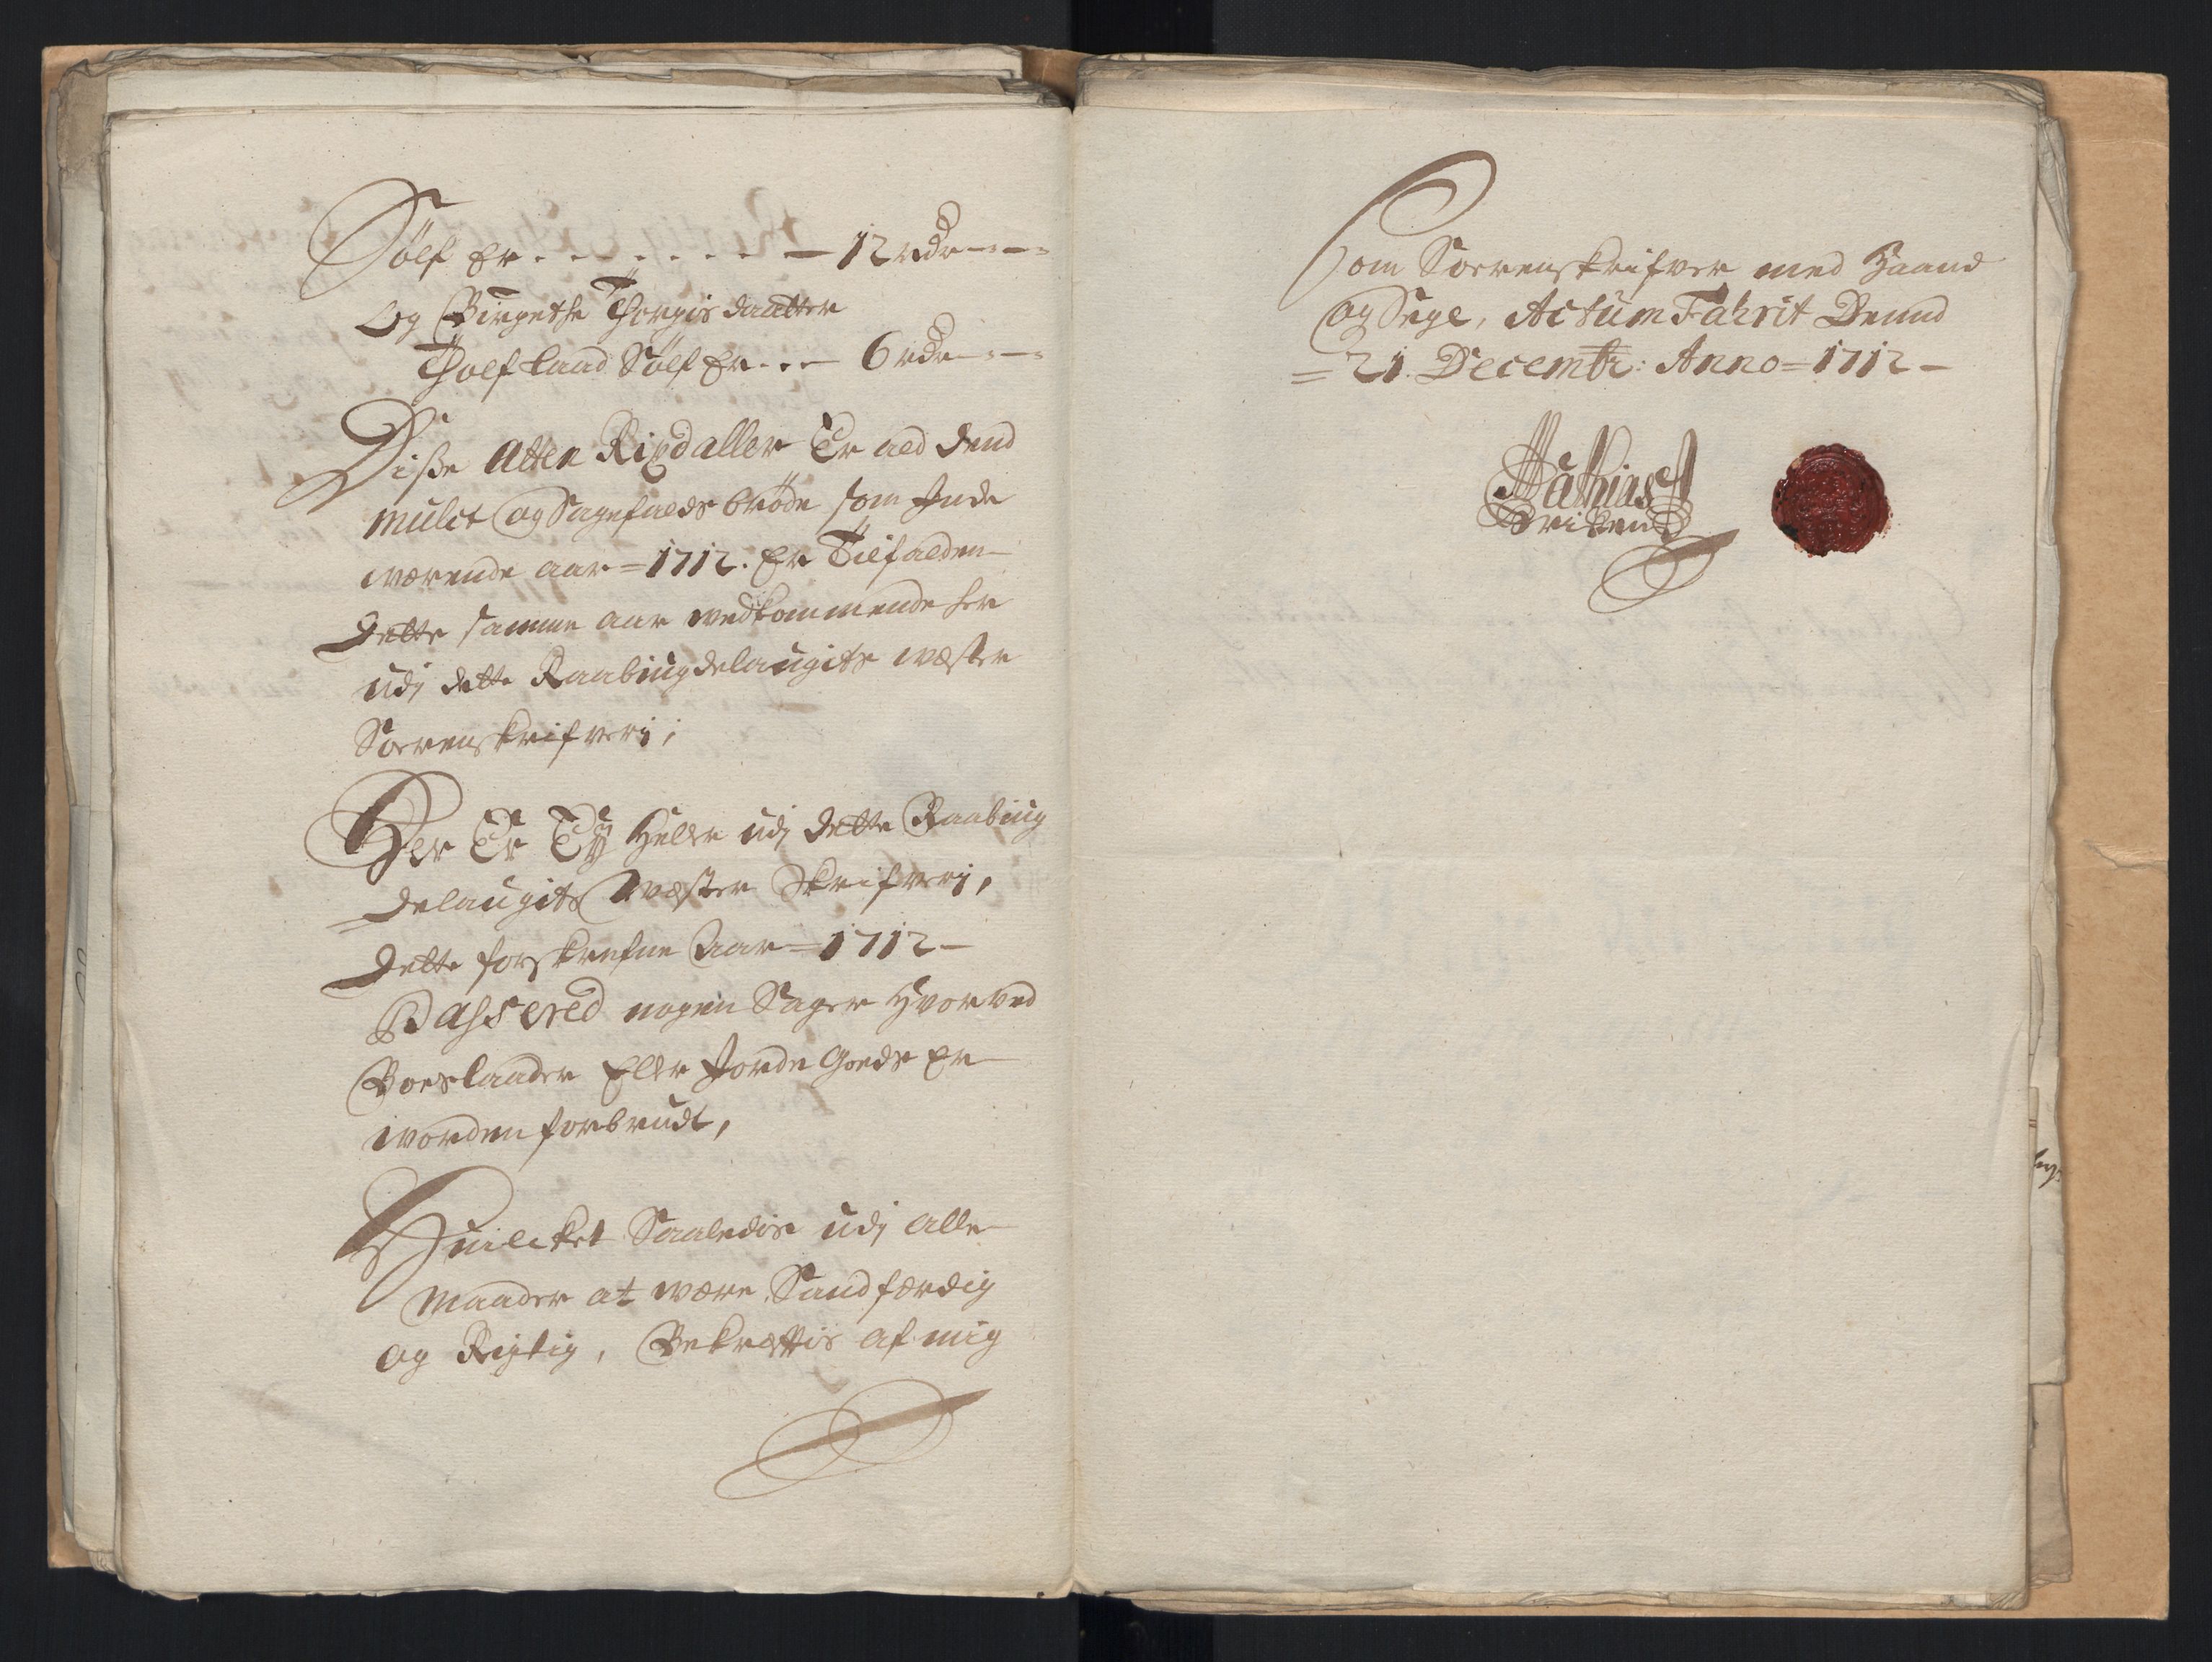 Sølf er . . . . . . . . — 12 rdr — —
Og Birgethe Thorgis daatter
Tholf Laad Sølf Er . . . — 6 rdr — —
Diße Atten Rixdaller Er ald dend
mulct og Sagefalds bøde som Inde
wærende aar = 1712. Er Tilfalden —
Dette samme aar wedkommende her
udj dette Raabiugdelaugits wæster
Sorenskrifverj;
Her Er Ey heller udj dette Raabiug
delaugits Wæster Skrifverj,
Dette forskrefne Aar = 1712 —
Passered nogen Sager hvorved
Boeslaader Eller Jorde Goeds Er —
worden forbrudt,
Huilcket Saaledis udj alle
Maader at være Sandfærdig
og Rigtig, Bekræftis af mig
Som Sorenskrifver med Haand
og Segl, Actum Fahrit Dend
= 21. Decembr: Anno = 1712 —
Mathias